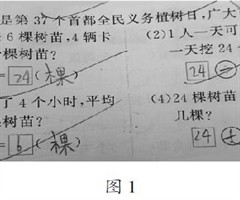 是第 37 个首都全民义务植树日，广大
6 棵树苗，4 辆卡
棵树苗？
= 24 (棵)
(2)1 人一天可
一天挖 24
24
了 4 个小时，平均
树苗？
= 6 (棵)
(4)24 棵树苗
几棵？
24
图 1